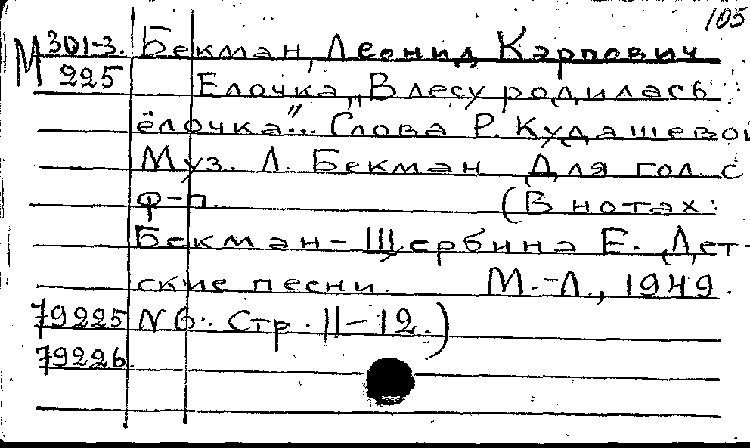 105
М 301-3. Бекман, Леонид Карпович
225 Елочка „В лесу родилась
ёлочка"... Слова Р. Кудашевой
Муз. Л. Бекман Для гол. с
ф-п. (В нотах:
Бекман-Щербина Е. Дет-
ские песни. М.-Л., 1949.
79225 N 6. Стр. 11-12.)
79226